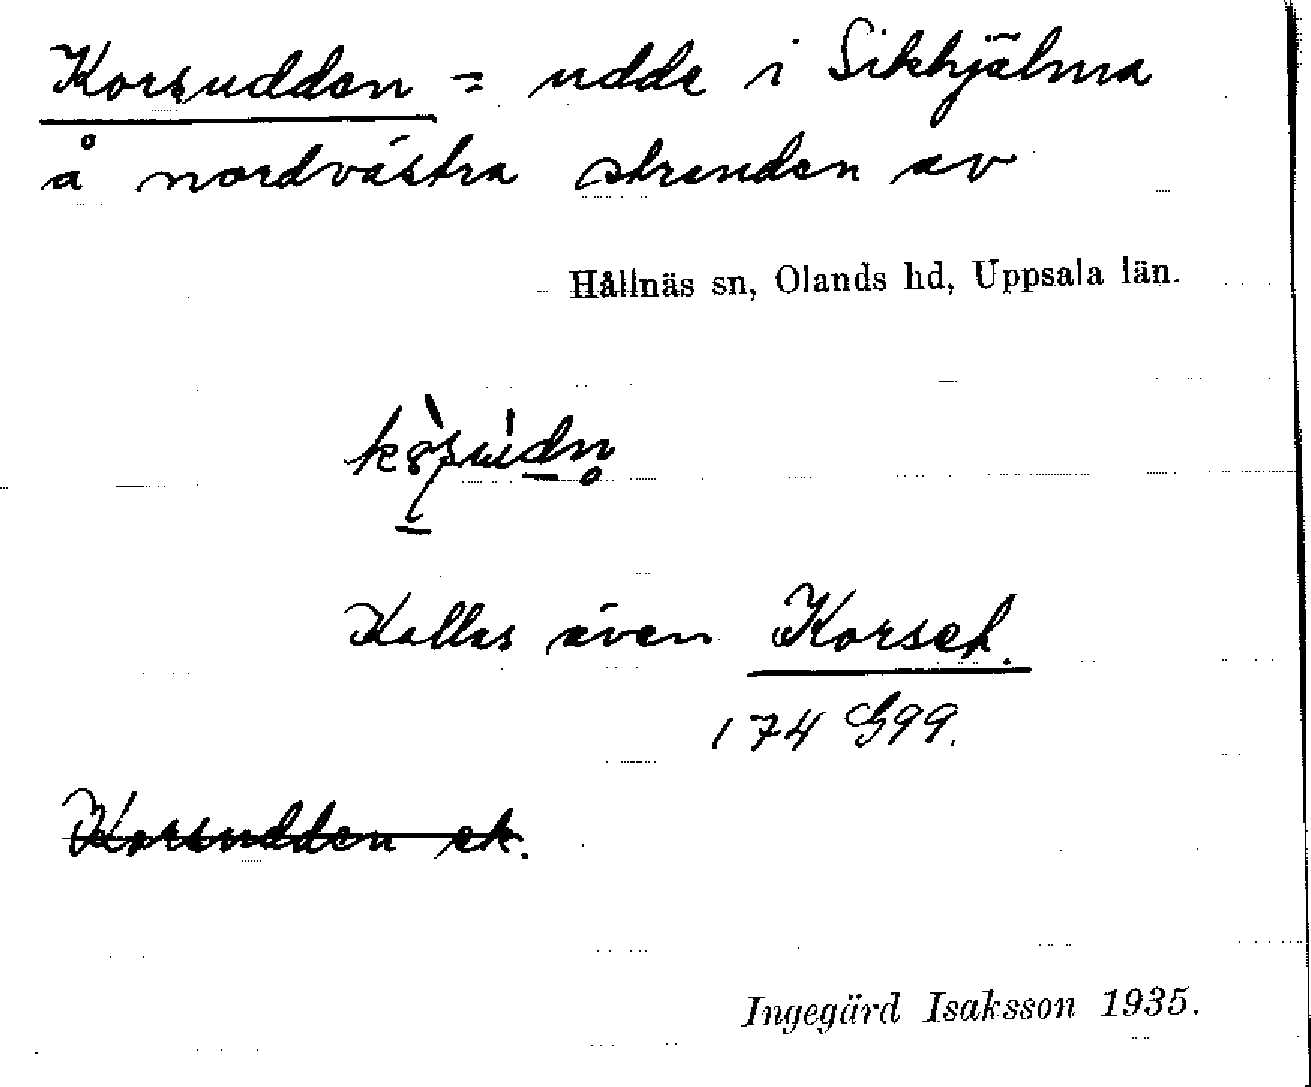 Korsudden = udde i Sikhjälma
å nordvästra stranden av
Hållnäs sn, Olands hd, Uppsala län.
Kallas även Korset.
174 G99.
Korsudden ek.
Ingegärd Isaksson 1935.